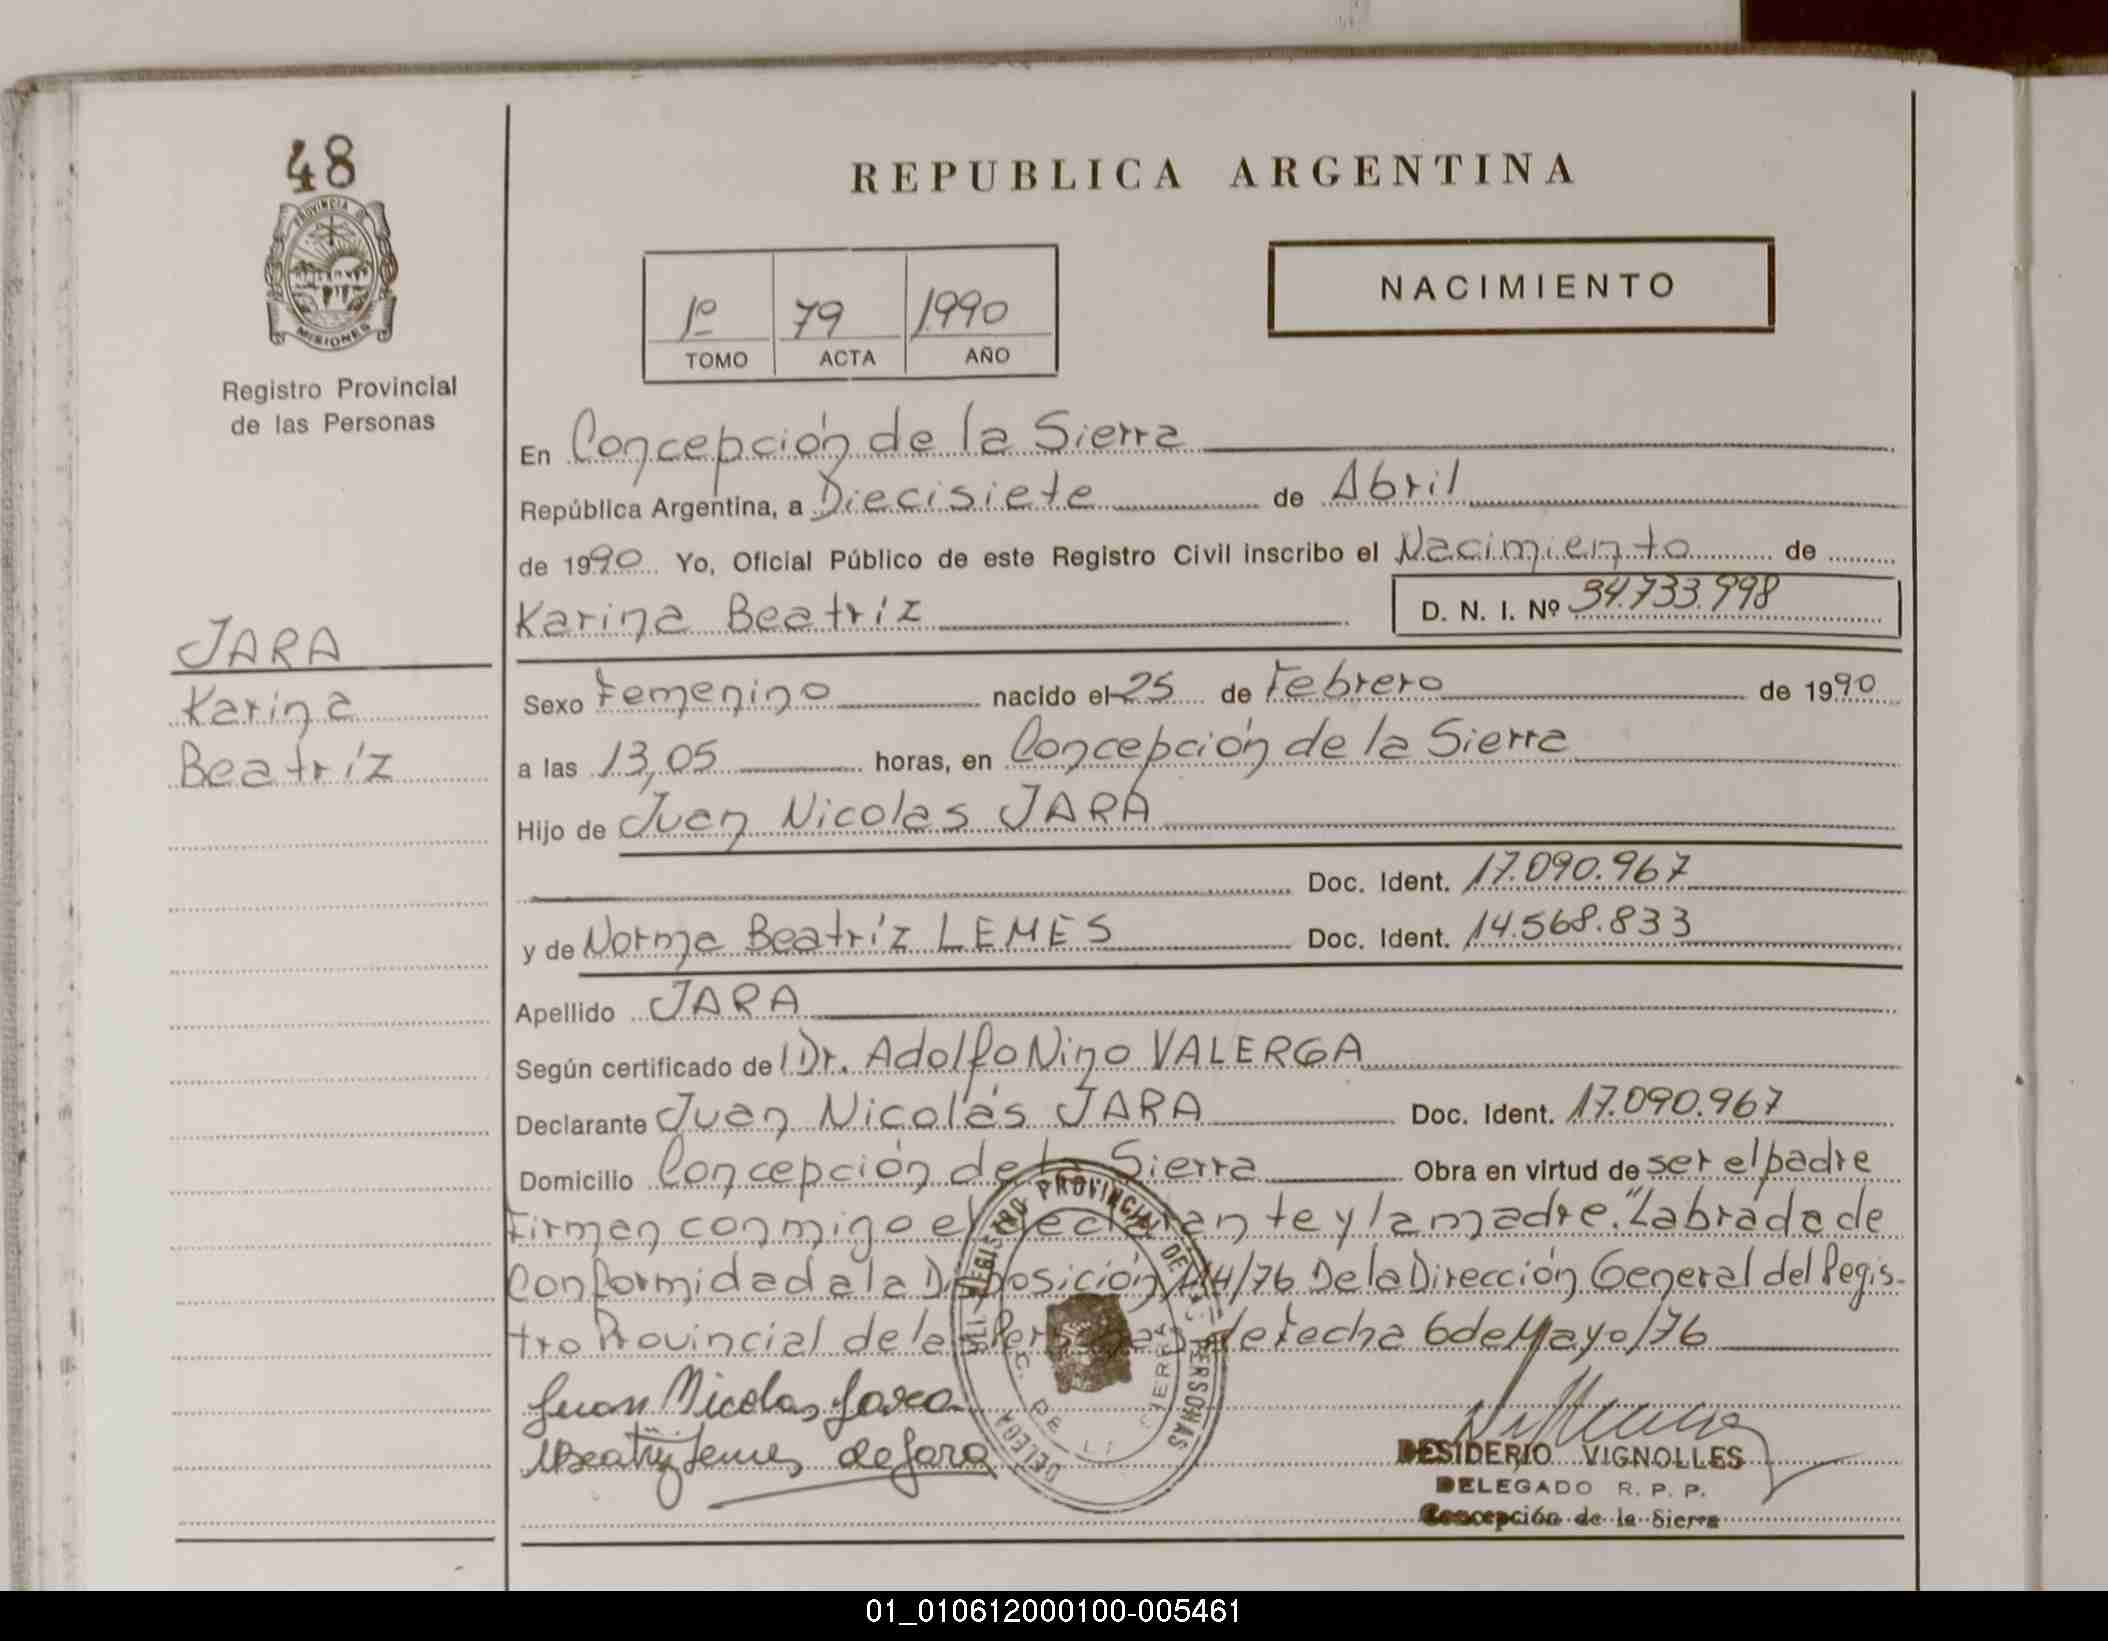 48
PROVINCIA DE
MISIONES
Registro Provincial
de las Personas
JARA
Karina
Beatríz
REPUBLICA ARGENTINA
1º 79 1990
TOMO ACTA AÑO
NACIMIENTO
En Concepción de la Sierra
República Argentina, a Diecisiete de Abril
de 1990 Yo, Oficial Público de este Registro Civil inscribo el Nacimiento de
Karina Beatríz D. N. I. Nº 34.733.998
Sexo Femenino nacido el 25 de Febrero de 1990
a las 13,05 horas, en Concepción de la Sierra
Hijo de Juan Nicolas JARA
Doc. Ident. 17.090.967
y de Norma Beatríz LEMES Doc. Ident. 14.568.833
Apellido JARA
Según certificado de l Dr. Adolfo Nino VALERGA
Declarante Juan Nicolás JARA Doc. Ident. 17.090.967
Domicilio Concepción de la Sierra Obra en virtud de ser el padre
Firman conmigo el declarante y la madre. "Labrada de
Conformidad a la Disposición 114/76 De la Dirección General del Regis-
tro Provincial de las Personas de fecha 6 de Mayo/76
Juan Nicolas Jara
NBeatriz Lemes de Jara
REGISTRO PROVINCIAL DE LAS PERSONAS
DELEGA
DESIDERIO VIGNOLLES
DELEGADO R. P. P.
Concepción de la Sierra
01_010612000100-005461